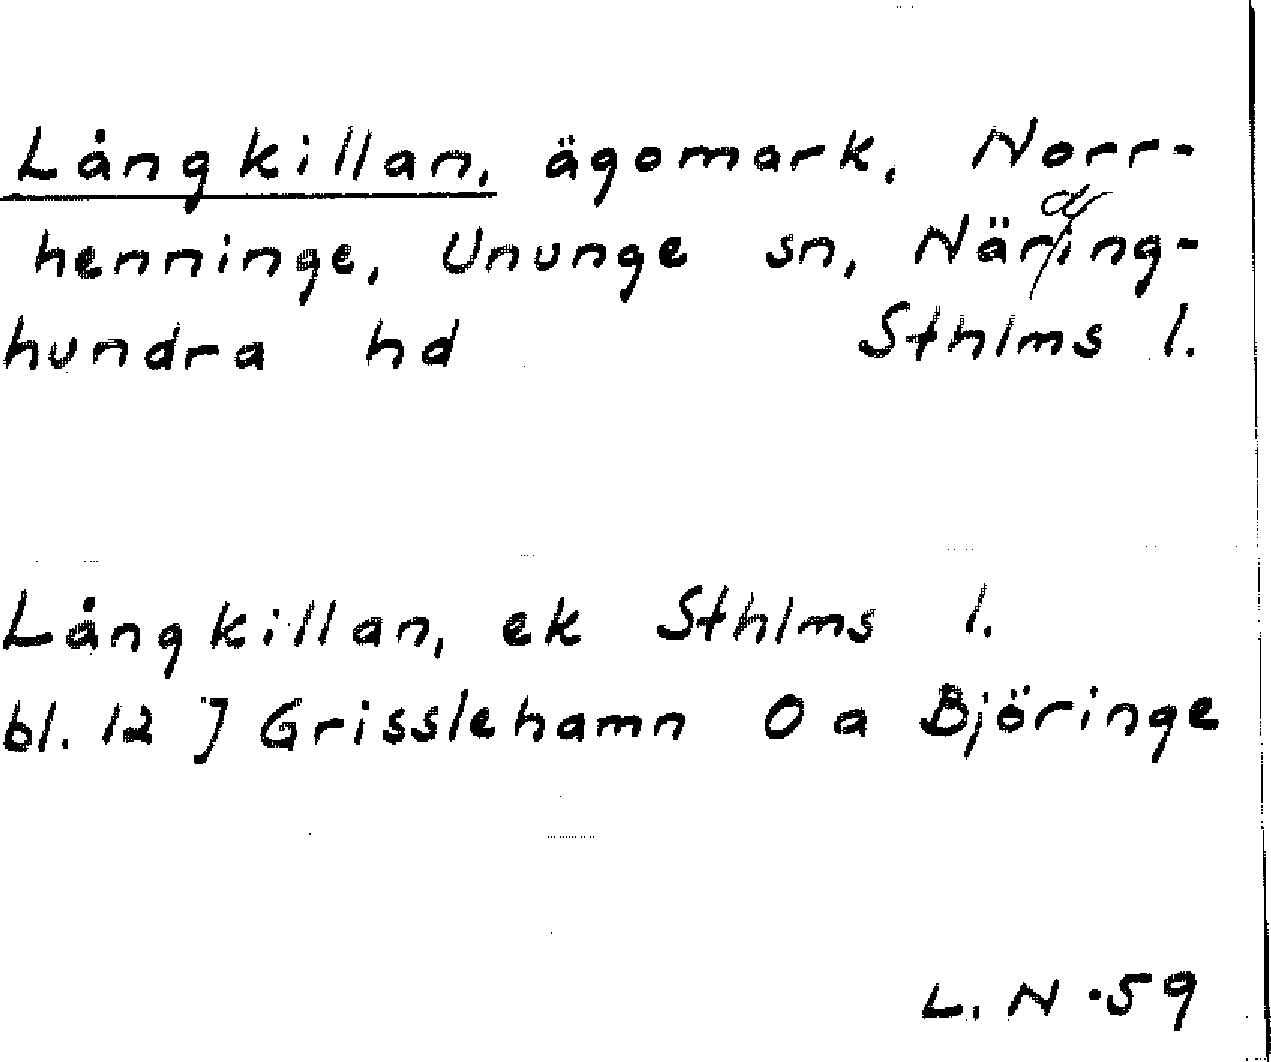 Långkillan, ägomark, Norr-
henninge, Ununge sn, Närding-
hundra hd Sthlms l.
Långkillan, ek Sthlms l.
bl. 12 J Grisslehamn O a Björinge
L. N ·59